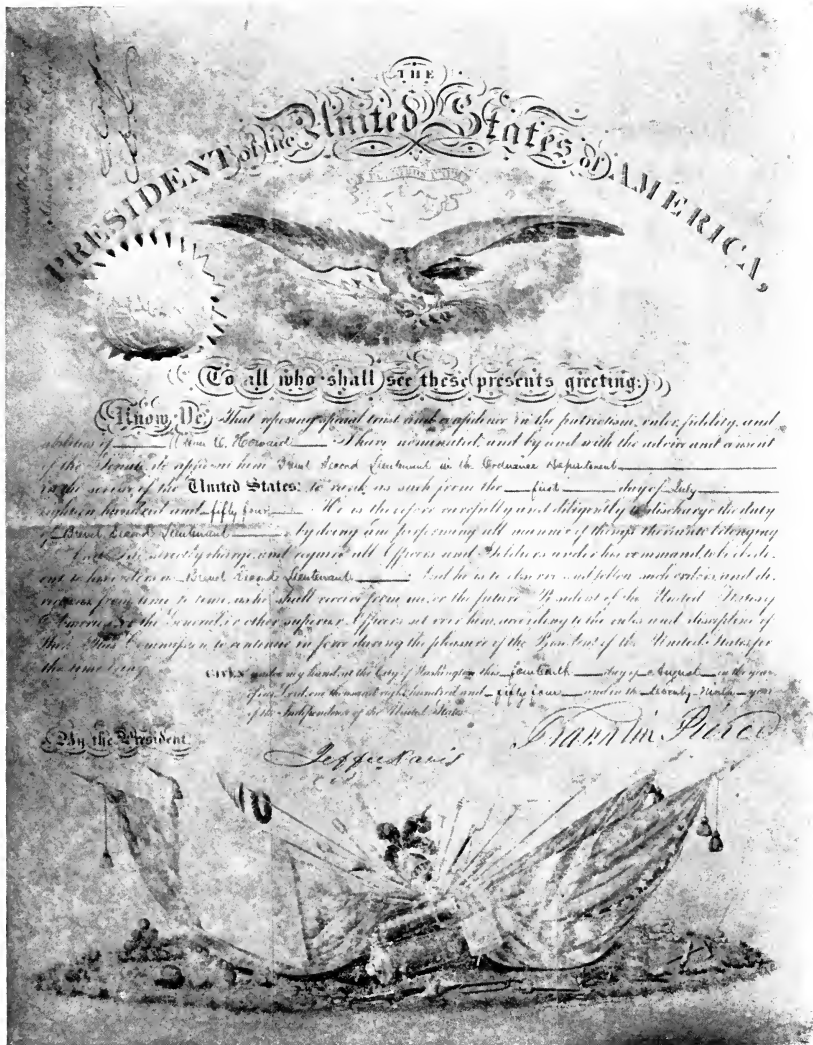 THE
PRESIDENT of the United States of AMERICA,
To all who shall see these presents greeting:
Know Ye, That reposing special trust and confidence in the patriotism, valor, fidelity, and
abilities of Howard I have nominated, and by and with the advice and consent
of the Senate, do appoint him Brevet Second Lieutenant in the Ordnance Department
in the service of the United States: to rank as such from the first day of July
eighteen hundred and fifty four. He is therefore carefully and diligently to discharge the duty
of Brevet Second Lieutenant by doing and performing all manner of things thereunto belonging
And I do strictly charge, and require all Officers and Soldiers under his command, to be obedi-
ent to his orders as Brevet Second Lieutenant And he is to observe and follow such orders, and di-
rections, from time to time, as he shall receive from me, or the future President of the United States of
America, or the General, or other superior Officers set over him, according to the rules and discipline of
War. This Commission to continue in force during the pleasure of the President of the United States, for
the time being.
GIVEN under my hand, at the City of Washington, this fourth day of August in the year
of our Lord, one thousand eight hundred and fifty four and in the seventy ninth year
of the Independence of the United States.
By the President Franklin Pierce
Jeffer Davis